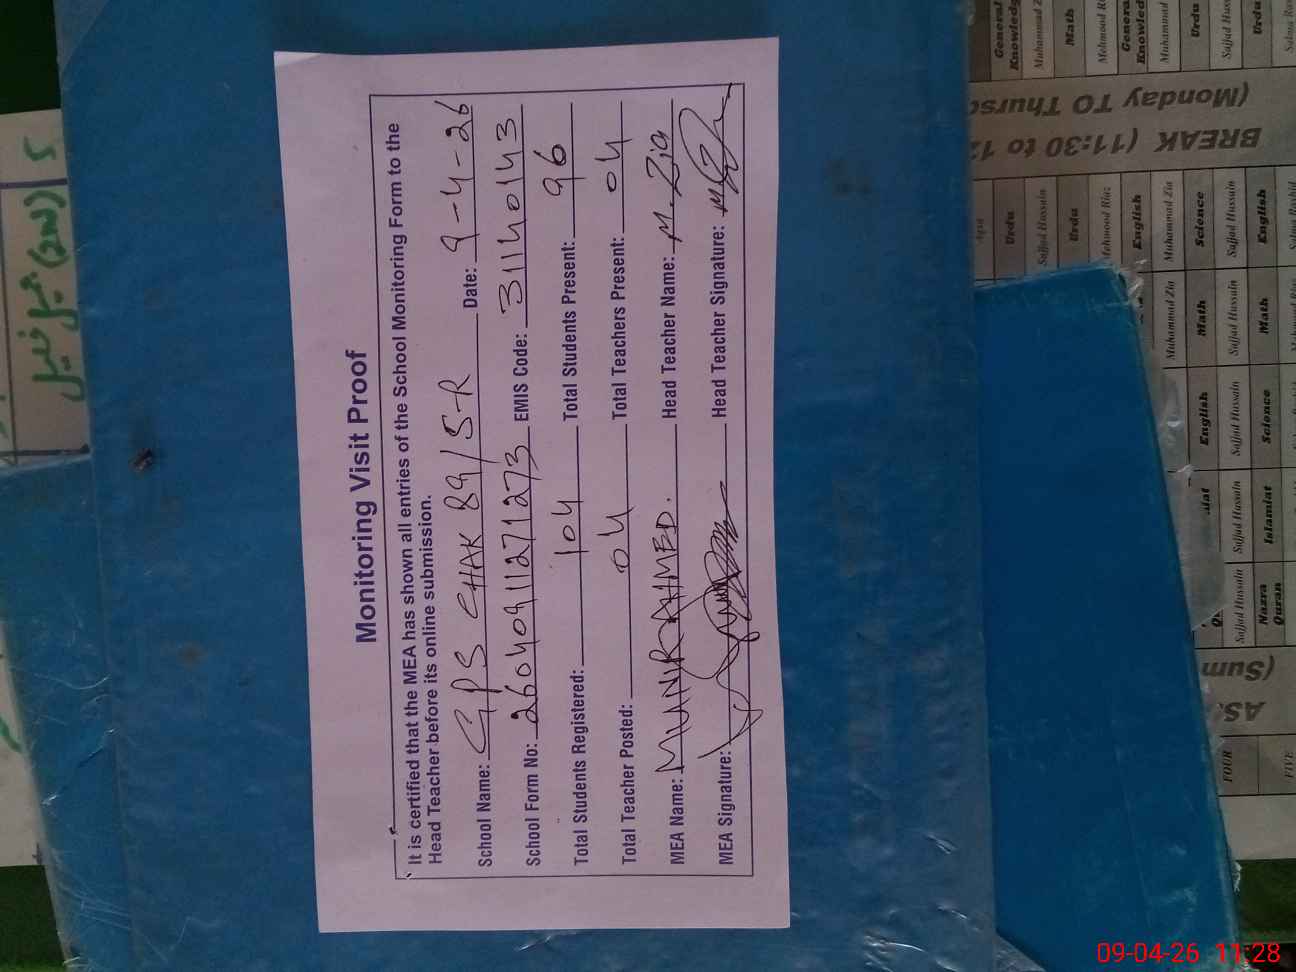 Monitoring Visit Proof
It is certified that the MEA has shown all entries of the School Monitoring Form to the
Head Teacher before its online submission.
School Name: GPS CHAK 89/5-R Date: 9-4-26
School Form No: 26040911271273 EMIS Code: 31140143
Total Students Registered: 104 Total Students Present: 96
Total Teacher Posted: 04 Total Teachers Present: 04
MEA Name: MUNIR AHMED. Head Teacher Name: M. Zia
MEA Signature: Head Teacher Signature:
General Knowledge
Math
General Knowledge
Muhammad
Urdu
Sajjad Hussain
Urdu
BREAK (11:30 to 12
(Monday TO Thursd
Urdu
Sajjad Hussain
Urdu
Mehmood Riaz
English
Muhammad Zia
Science
Sajjad Hussain
English
Salma Rashid
Muhammad Zia
Math
Sajjad Hussain
Math
English
Sajjad Hussain
Science
Sajjad Hussain
Islamiat
Sajjad Hussain
Nazra Quran
(Sum
AS
FOUR
FIVE
09-04-26 11:28